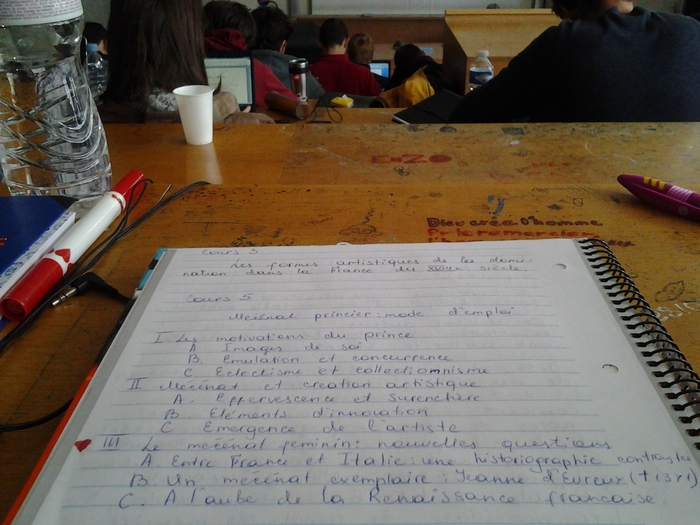 ENZO
Dieu créa l'homme
Cours 3
Les formes artistiques de la domi-
nation dans la France du siècle.
Cours 5
Mécénat princier : mode d'emploi
I Les motivations du prince
A Images de soi
B. Emulation et concurrence
C. Eclectisme et collectionnisme
II Mécénat et création artistique
A. Effervescence et surenchère
B. Eléments d'innovation
C Emergence de l'artiste
III Le mécénat feminin : nouvelles questions
A Entre France et Italie : une historiographie
B. Un mécénat exemplaire : Jeanne d'Evreux († 1371)
C. A l'aube de la Renaissance française